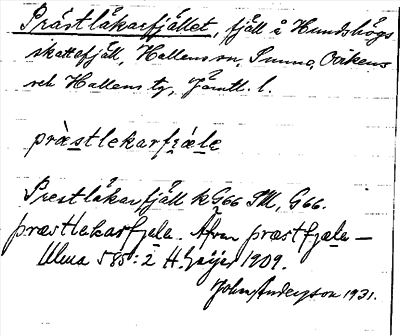 Prästläkarfjället, fjäll å Hundshögs
skattefjäll, Hallens sn, Sunne, Ovikens
och Hallens tg, Jämtl. l.
præ̀stlekarfıæle
Prestläkarfjäll kG66 SM, G66.
præstlekarfjælə. Även præstfjælə —
Ulma 585:2 H. Geijer 1909.
John Andersson 1931.